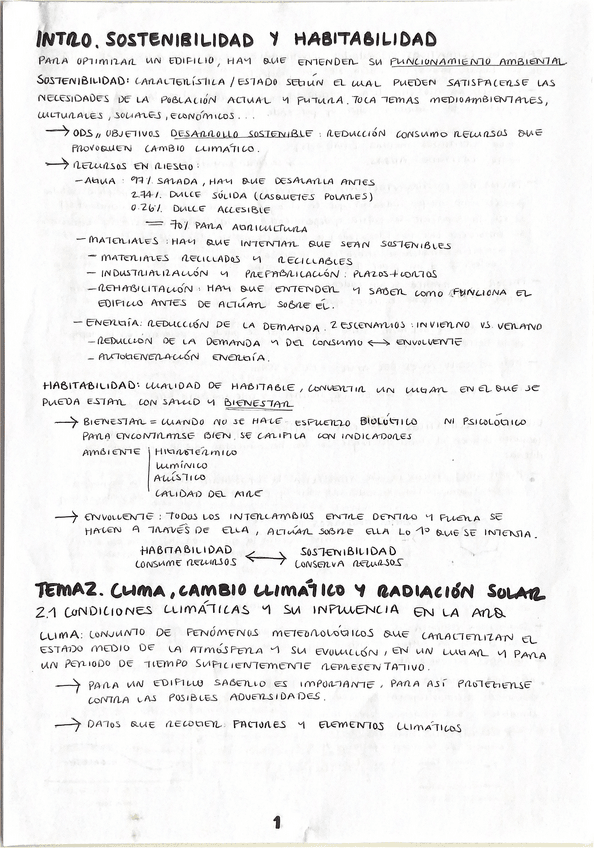 INTRO. SOSTENIBILIDAD Y HABITABILIDAD
PARA OPTIMIZAR UN EDIFICIO, HAY QUE ENTENDER SU FUNCIONAMIENTO AMBIENTAL
SOSTENIBILIDAD: CARACTERÍSTICA / ESTADO SEGÚN EL CUAL PUEDEN SATISFACERSE LAS
NECESIDADES DE LA POBLACIÓN ACTUAL Y FUTURA. TOCA TEMAS MEDIOAMBIENTALES,
CULTURALES, SOCIALES, ECONÓMICOS...
→ ODS,, OBJETIVOS DESARROLLO SOSTENIBLE: REDUCCIÓN CONSUMO RECURSOS QUE
PROVOQUEN CAMBIO CLIMÁTICO.
→ RECURSOS EN RIESGO:
- AGUA: 97% SALADA, HAY QUE DESALARLA ANTES
2.74% DULCE SÓLIDA (CASQUETES POLARES)
0.26% DULCE ACCESIBLE
= 70% PARA AGRICULTURA
- MATERIALES: HAY QUE INTENTAR QUE SEAN SOSTENIBLES
- MATERIALES RECICLADOS Y RECICLABLES
- INDUSTRIALIZACIÓN Y PREFABRICACIÓN: PLAZOS + CORTOS
- REHABILITACIÓN: HAY QUE ENTENDER Y SABER COMO FUNCIONA EL
EDIFICIO ANTES DE ACTUAR SOBRE ÉL.
- ENERGÍA: REDUCCIÓN DE LA DEMANDA. 2 ESCENARIOS: INVIERNO VS. VERANO
- REDUCCIÓN DE LA DEMANDA Y DEL CONSUMO ↔ ENVOLVENTE
- AUTOGENERACIÓN ENERGÍA.
HABITABILIDAD: CUALIDAD DE HABITABLE, CONVERTIR UN LUGAR EN EL QUE SE
PUEDA ESTAR CON SALUD Y BIENESTAR
→ BIENESTAR = CUANDO NO SE HACE ESFUERZO BIOLÓGICO NI PSICOLÓGICO
PARA ENCONTRARSE BIEN. SE CALIFICA CON INDICADORES
AMBIENTE | HIGROTÉRMICO
LUMÍNICO
ACÚSTICO
CALIDAD DEL AIRE
→ ENVOLVENTE: TODOS LOS INTERCAMBIOS ENTRE DENTRO Y FUERA SE
HACEN A TRAVÉS DE ELLA, ACTUAR SOBRE ELLA LO 1º QUE SE INTENTA.
HABITABILIDAD ↔ SOSTENIBILIDAD
CONSUME RECURSOS CONSERVA RECURSOS
TEMA2. CLIMA, CAMBIO CLIMÁTICO Y RADIACIÓN SOLAR
2.1 CONDICIONES CLIMÁTICAS Y SU INFLUENCIA EN LA ARQ
CLIMA: CONJUNTO DE FENÓMENOS METEOROLÓGICOS QUE CARACTERIZAN EL
ESTADO MEDIO DE LA ATMÓSFERA Y SU EVOLUCIÓN, EN UN LUGAR Y PARA
UN PERIODO DE TIEMPO SUFICIENTEMENTE REPRESENTATIVO.
→ PARA UN EDIFICIO SABERLO ES IMPORTANTE, PARA ASÍ PROTEGERSE
CONTRA LAS POSIBLES ADVERSIDADES.
→ DATOS QUE RECOGER: FACTORES Y ELEMENTOS CLIMÁTICOS
1